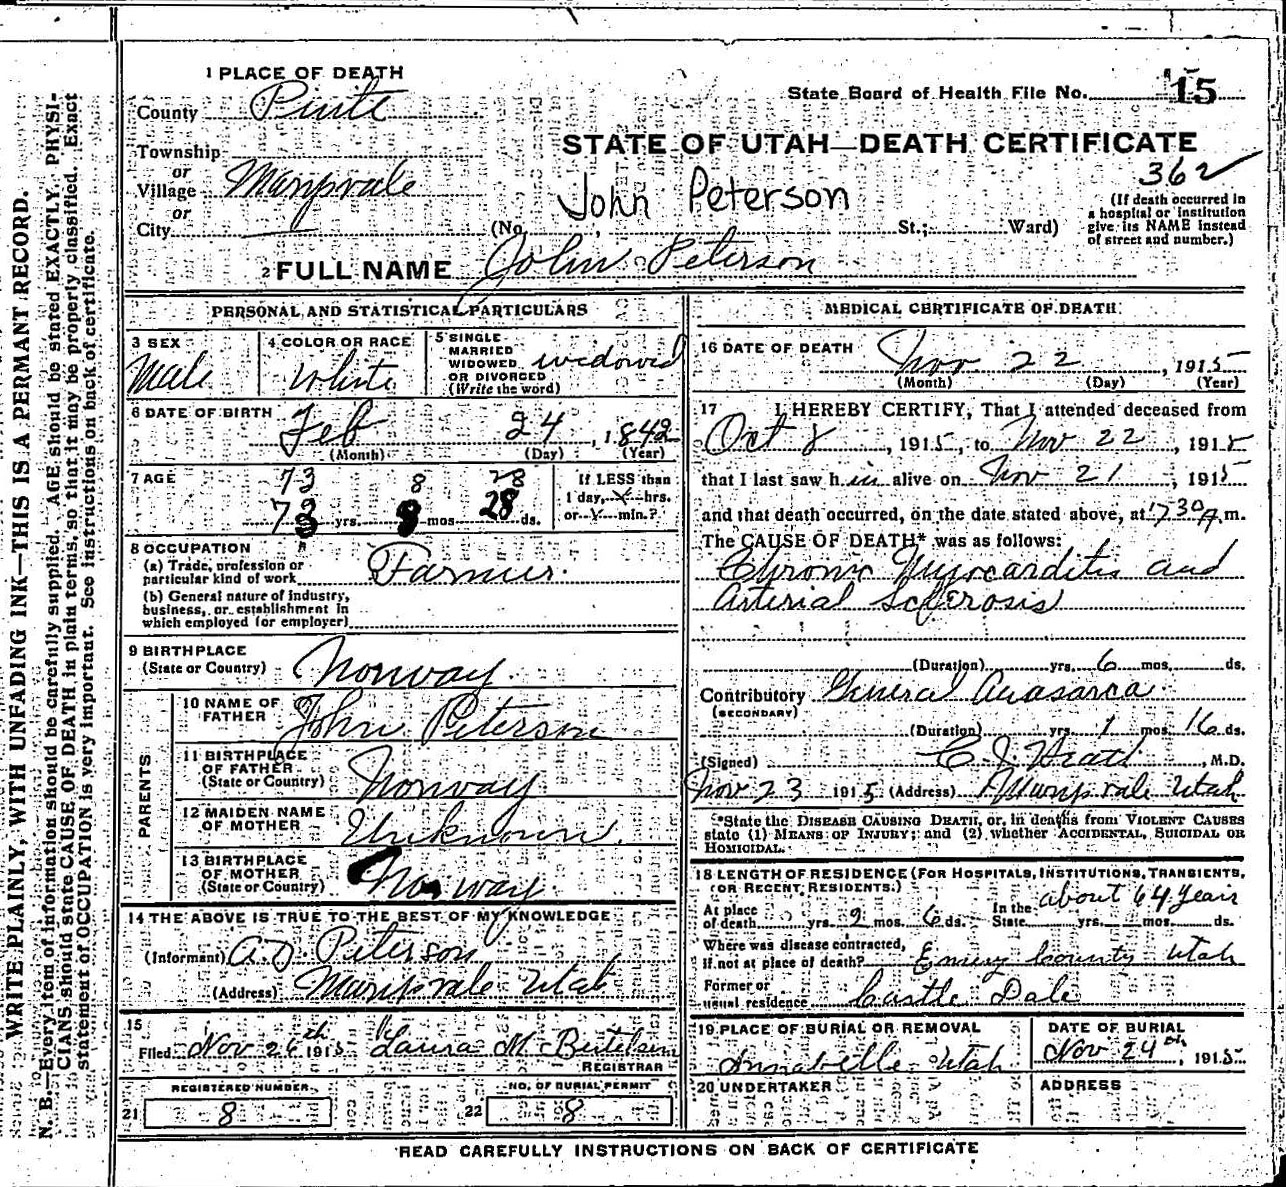 1 PLACE OF DEATH
State Board of Health File No. 15
County Piute
STATE OF UTAH—DEATH CERTIFICATE
362
Township
or
Village Marysvale
or
City
John Peterson
(No. St.; Ward)
(If death occurred in
a hospital or institution
give its NAME instead
of street and number.)
2 FULL NAME John Peterson
PERSONAL AND STATISTICAL PARTICULARS
3 SEX
Male
4 COLOR OR RACE
White
5 SINGLE
MARRIED
WIDOWED
OR DIVORCED
(Write the word)
widowed
6 DATE OF BIRTH
Feb 24, 1842
(Month) (Day) (Year)
7 AGE
73 8 28
73 yrs. 8 mos. 28 ds.
If LESS than
1 day, hrs.
or min.?
8 OCCUPATION
(a) Trade, profession or
particular kind of work Farmer.
(b) General nature of industry,
business, or establishment in
which employed (or employer)
9 BIRTHPLACE
(State or Country) Norway.
PARENTS
10 NAME OF
FATHER John Peterson
11 BIRTHPLACE
OF FATHER
(State or Country) Norway
12 MAIDEN NAME
OF MOTHER Unknown.
13 BIRTHPLACE
OF MOTHER
(State or Country) Norway
14 THE ABOVE IS TRUE TO THE BEST OF MY KNOWLEDGE
(Informant) A. D. Peterson
(Address) Marysvale Utah
15
Filed Nov 26th 1915 Laura M Bertelsen
REGISTRAR
REGISTERED NUMBER
21 8
NO. OF BURIAL PERMIT
22 8
MEDICAL CERTIFICATE OF DEATH
16 DATE OF DEATH
Nov 22, 1915
(Month) (Day) (Year)
17 I HEREBY CERTIFY, That I attended deceased from
Oct 8, 1915, to Nov 22, 1915
that I last saw him alive on Nov 21, 1915
and that death occurred, on the date stated above, at 730 A.m.
The CAUSE OF DEATH* was as follows:
Chronic Myocarditis and
Arterial Sclerosis
(Duration) yrs. 6 mos. ds.
Contributory General Anasarca
(SECONDARY)
(Duration) yrs. 1 mos. 16 ds.
(Signed) C. J. , M.D.
Nov 23 1915 (Address) Marysvale Utah
*State the DISEASE CAUSING DEATH, or, in deaths from VIOLENT CAUSES
state (1) MEANS OF INJURY; and (2) whether ACCIDENTAL, SUICIDAL OR
HOMICIDAL.
18 LENGTH OF RESIDENCE (FOR HOSPITALS, INSTITUTIONS, TRANSIENTS,
OR RECENT RESIDENTS.)
At place
of death yrs. 2 mos. 6 ds.
In the
State yrs. mos. ds.
about 64 years
Where was disease contracted,
if not at place of death? Emery County Utah
Former or
usual residence Castle Dale
19 PLACE OF BURIAL OR REMOVAL
Annabelle Utah
DATE OF BURIAL
Nov 24th, 1915
20 UNDERTAKER
ADDRESS
READ CAREFULLY INSTRUCTIONS ON BACK OF CERTIFICATE
WRITE PLAINLY, WITH UNFADING INK—THIS IS A PERMANT RECORD.
N. B.—Every item of information should be carefully supplied. AGE should be stated EXACTLY. PHYSI-
CIANS should state CAUSE OF DEATH in plain terms, so that it may be properly classified. Exact
statement of OCCUPATION is very important. See instructions on back of certificate.